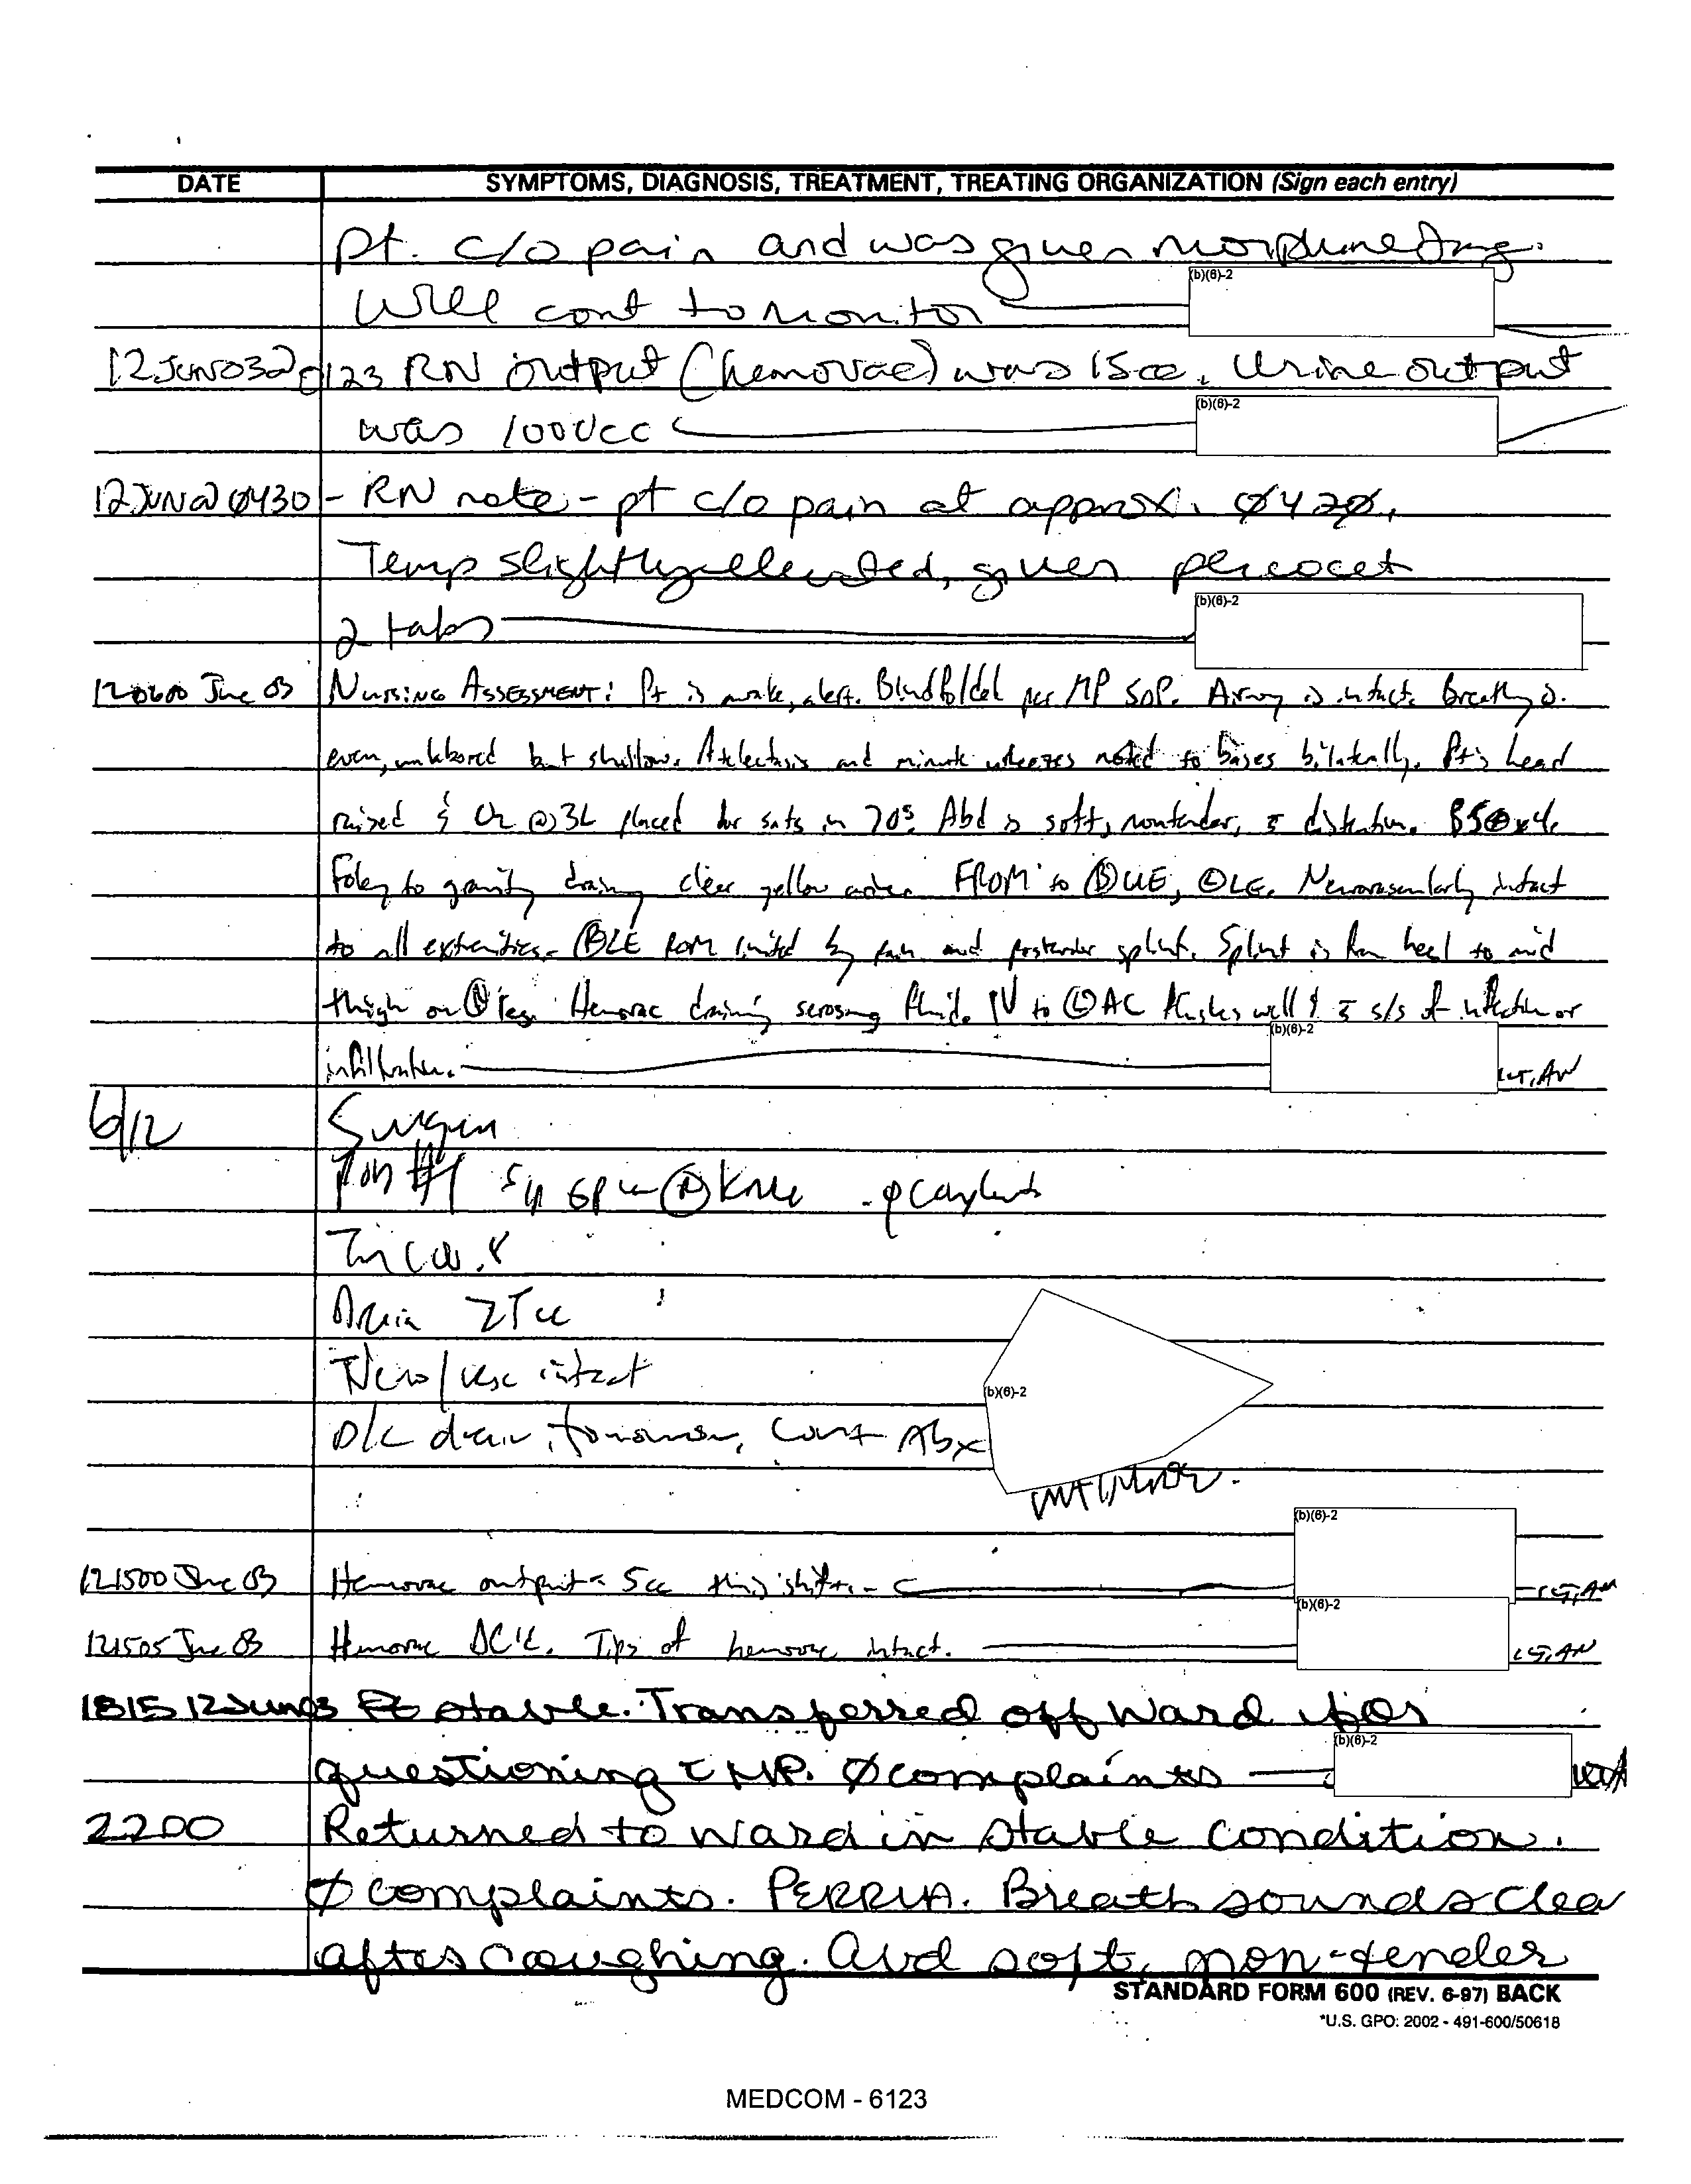 DATE SYMPTOMS, DIAGNOSIS, TREATMENT, TREATING ORGANIZATION (Sign each entry)
pt. c/o pain and was given morphine
(b)(6)-2
Will cont to monitor
12JUN03 @ 0123 RN output (hemovac) was 15cc. Urine output
was 1000cc
(b)(6)-2
12JUN @ 0430 - RN note - pt c/o pain at approx. 0420.
Temp slightly ellevated, given percocet
(b)(6)-2
2 tabs
120600 June 03 NURSING ASSESSMENT: Pt is awake, alert. Blindfolded per MP SOP. Airway is intact. Breathing is
even, unlabored but shallow. Atelectasis and minute wheezes noted to bases bilaterally. Pt's head
raised & O2 @ 3L placed for sats in 70s. Abd is soft, nontender, s̄ distention. BS⊕x4.
Foley to gravity draining clear yellow urine. FROM to Ⓑ UE, Ⓛ LE. Neurovascularly intact
to all extremities. Ⓡ LE ROM limited by pain and posterior splint. Splint is from heel to mid
thigh on Ⓡ leg. Hemovac draining serosang fluid. IV to Ⓛ AC flushes well & s̄ s/s of infection or
(b)(6)-2
infiltration. LT, AN
6/12 Surgery
#1 Ⓡ Knee
Drain cc
Neuro/vasc intact
(b)(6)-2
D/C drain tomorrow, cont Abx
(b)(6)-2
121500 June 03 Hemovac output 5cc this shift. AN
(b)(6)-2
121505 June 03 Hemovac DC'd. Tips of hemovac intact. AN
1815 12Jun03 Pt stable. Transferred off ward for
(b)(6)-2
questioning c̄ MP. Ø complaints
2200 Returned to ward in stable condition.
Ø complaints. PERRLA. Breath sounds clear
after coughing. Abd soft, non-tender
STANDARD FORM 600 (REV. 6-97) BACK
*U.S. GPO: 2002 - 491-600/50618
MEDCOM - 6123